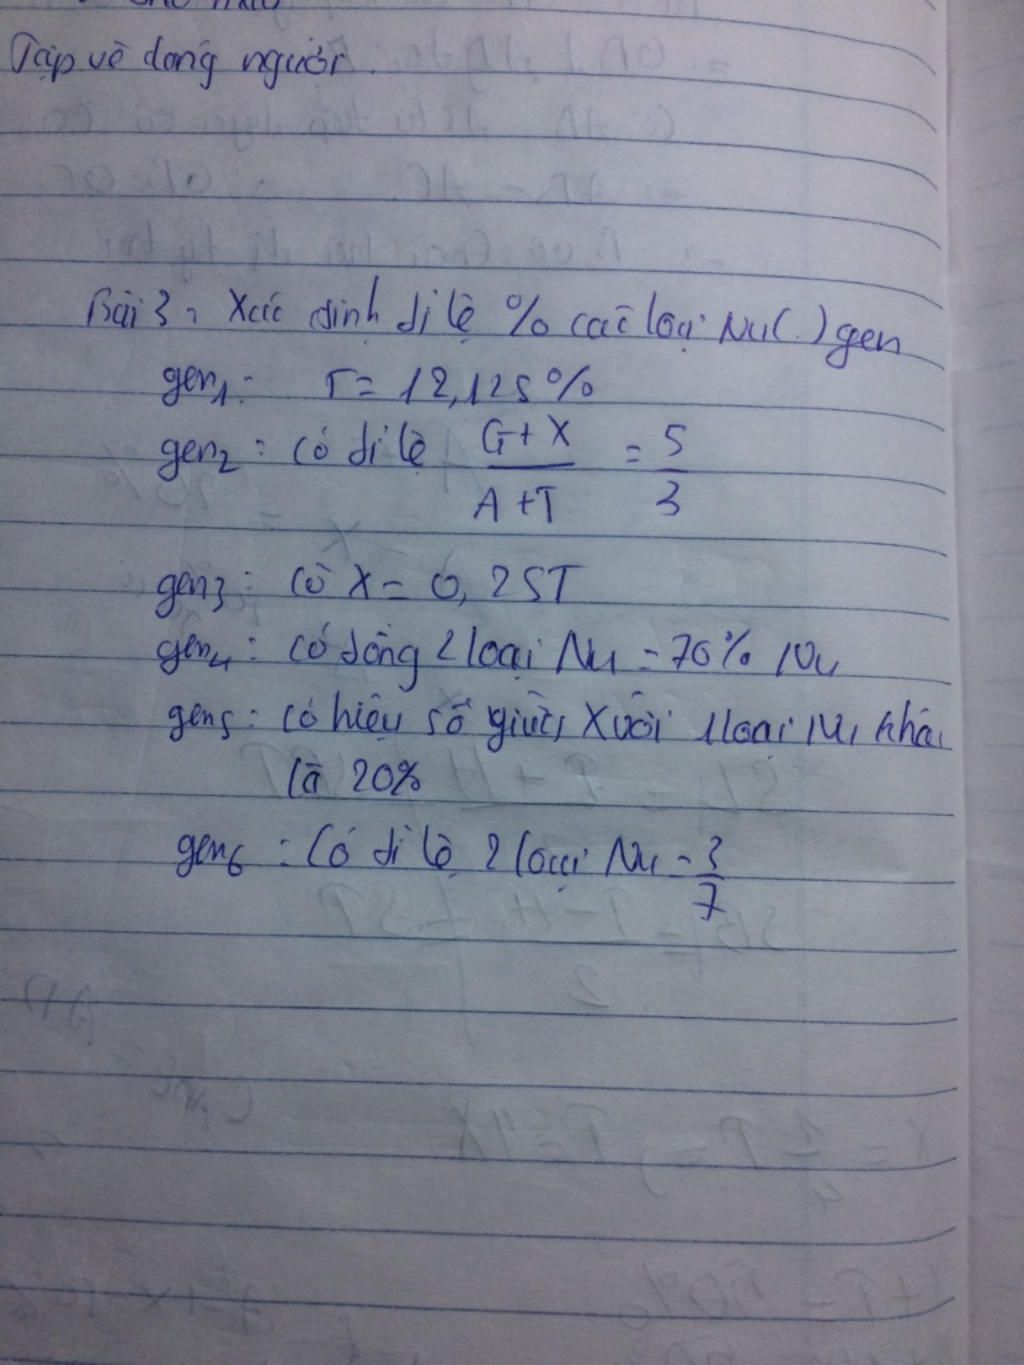 Tập vẽ dáng người.
Bài 3: Xác định tỉ lệ % các loại Nu (.) gen
gen1: T = 12,125%
gen2: có tỉ lệ G+X / A+T = 5/3
gen3: có X = 0,25T
gen4: có tổng 2 loại Nu = 70% Nu
gen5: có hiệu số giữa X với 1 loại Nu khác
là 20%
gen6: Có tỉ lệ 2 loại Nu = 3/7